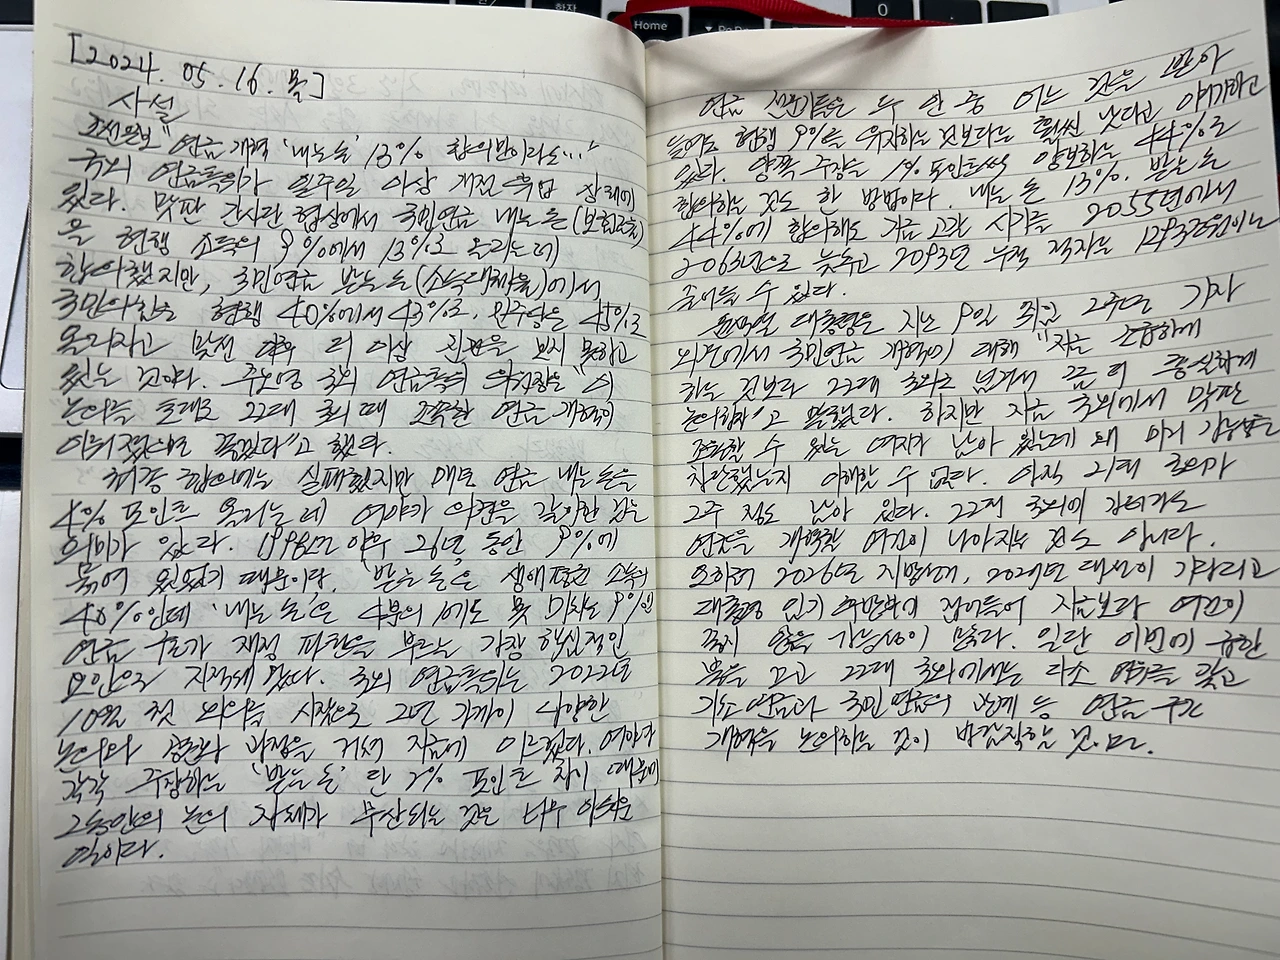 한자
Home
0
[2024. 05. 16. 목]
사설
조선일보 "연금 개혁 '내는 돈' 13% 합의만이라도…"
국회 연금특위가 일주일 이상 개점 휴업 상태에
있다. 막판 간사단 협상에서 국민연금 내는 돈(보험료율)
을 현행 소득의 9%에서 13%로 올리는데
합의했지만, 국민연금 받는 돈(소득대체율)에서
국민의힘은 현행 40%에서 43%로, 민주당은 45%로
올리자고 맞선 이후 더 이상 진전을 보지 못하고
있는 것이다. 주호영 국회 연금특위 위원장은 "이
논의를 토대로 22대 국회 때 조속한 연금 개혁이
이뤄졌으면 좋겠다"고 했다.
최종 합의에는 실패했지만 애초 연금 내는 돈을
4% 포인트 올리는 데 여야가 의견을 같이한 것은
의미가 있다. 1998년 이후 26년 동안 9%에
묶여 있었기 때문이다. '받는 돈'은 생애 평균 소득의
40%인데 '내는 돈'은 4분의 1에도 못 미치는 9%인
연금 구조가 재정 파탄을 부르는 가장 핵심적인
요인으로 지적돼 왔다. 국회 연금특위는 2022년
10월 첫 회의를 시작으로 2년 가까이 다양한
논의와 공론화 과정을 거쳐 지금에 이르렀다. 여야가
각각 주장하는 '받는 돈' 단 2% 포인트 차이 때문에
그동안의 논의 자체가 무산되는 것은 너무 아쉬운
일이다.
연금 전문가들은 두 안 중 어느 것을 받아
들여도 현행 9%를 유지하는 것보다는 훨씬 낫다고 이야기하고
있다. 양쪽 주장을 1% 포인트씩 양보하는 44%로
합의하는 것도 한 방법이다. 내는 돈 13%, 받는 돈
44%에 합의해도 기금 고갈 시기를 2055년에서
2063년으로 늦추고 2093년 누적 적자는 조원이나
줄어들 수 있다.
윤석열 대통령은 지난 9일 취임 2주년 기자
회견에서 국민연금 개혁에 대해 "지금 조급하게
하는 것보다 22대 국회로 넘겨서 좀 더 충실하게
논의하자"고 말했다. 하지만 지금 국회에서 막판
조율할 수 있는 여지가 남아 있는데 왜 미리 가능성을
차단했는지 이해할 수 없다. 아직 21대 국회가
2주 정도 남아 있다. 22대 국회에 간다고
연금을 개혁할 여건이 나아지는 것도 아니다.
오히려 2026년 지방선거, 2027년 대선이 기다리고
대통령 임기 후반부에 접어들어 지금보다 여건이
좋지 않을 가능성이 많다. 일단 이번에 급한
불을 끄고 22대 국회에서는 다소 여유를 갖고
기초연금과 국민연금의 관계 등 연금 구조
개혁을 논의하는 것이 바람직할 것이다.